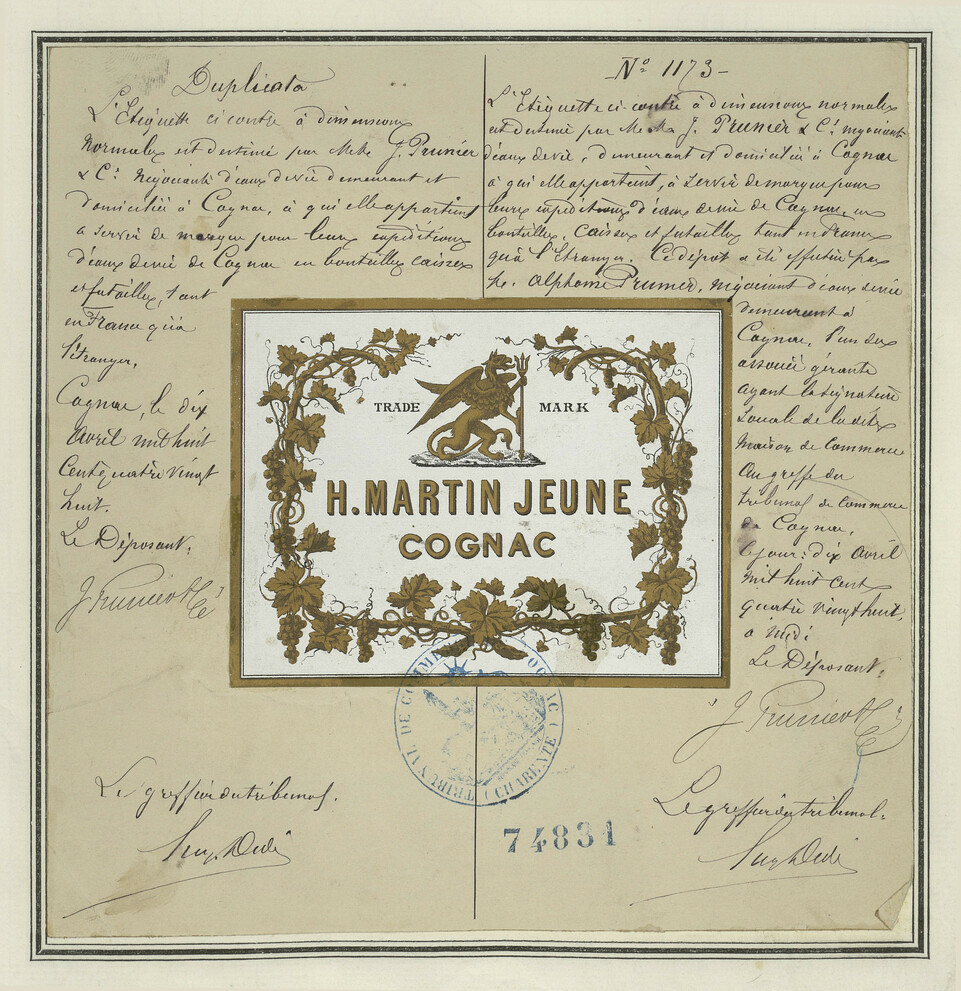 Duplicata
L'Etiquette ci contre à dimensions
normales est destiné par Mrs J. Prunier
& Cie Négociants d'eaux de vie demeurant et
domiciliés à Cognac, à qui elle appartient
a servir de marque pour leurs expéditions
d'eaux de vie de Cognac en bouteilles caisses
et futailles, tant
en France qu'à
l'étranger.
Cognac, le dix
Avril mil huit
Cent quatre vingt
huit.
Le Déposant.
J Prunier & Cie
Le greffier du tribunal.
No 1173
L'Etiquette ci contre à dimensions normales
est destiné par J. Prunier & Cie négociants
d'eaux de vie, demeurant et domicilié à Cognac
à qui elle appartient, à servir de marque pour
leurs expéditions d'eaux de vie de Cognac, en
bouteilles, caisses et futailles tant en France
qu'à l'Etranger. Ce dépot a été effectué par
M. Alphonse Prunier, négociant d'eaux de vie
demeurant à
Cognac, l'un des
associé gérants
ayant la signature
sociale de la dite
Maison de Commerce
Au greffe du
tribunal de Commerce
de Cognac,
ce jour: dix Avril
mil huit cent
quatre vingt huit,
à midi
Le Déposant.
J Prunier & Cie
Le greffier du tribunal.
TRADE MARK
H. MARTIN JEUNE
COGNAC
TRIBUNAL DE COMMERCE COGNAC (CHARENTE)
74831